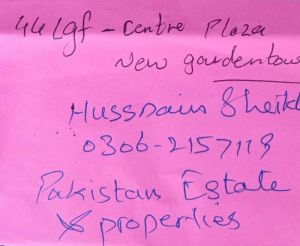 44 Lgf - Centre Plaza
New gardentow
Hussnain Sheikh
0306-2157119
Pakistan Estate
& properties